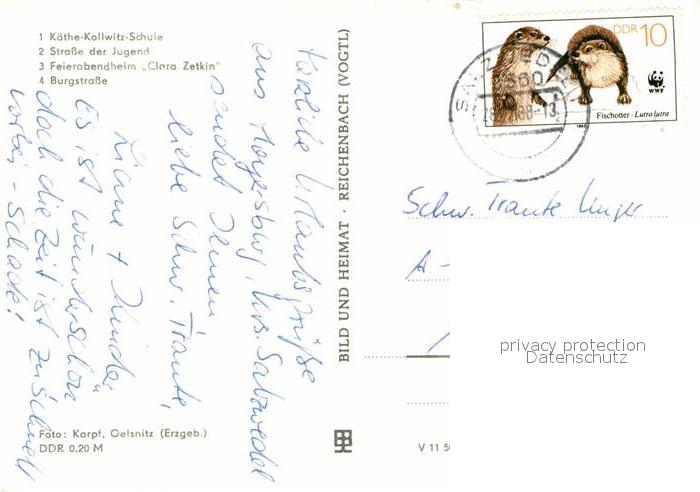 1 Käthe-Kollwitz-Schule
2 Straße der Jugend
3 Feierabendheim „Clara Zetkin"
4 Burgstraße
Herzliche Urlaubsgrüße
aus Krs. Salzwedel
sendet Ihnen
liebe Schw. Traute,
+ Kinder
Es ist wunderschön
doch die Zeit ist zu schnell
vorbei - Schade!
Foto: Karpf, Oelsnitz (Erzgeb.)
DDR 0,20 M
BILD UND HEIMAT · REICHENBACH (VOGTL)
V 11 50
DDR 10
WWF
Fischotter · Lutra lutra
Schw. Traute Unger
A-
privacy protection
Datenschutz